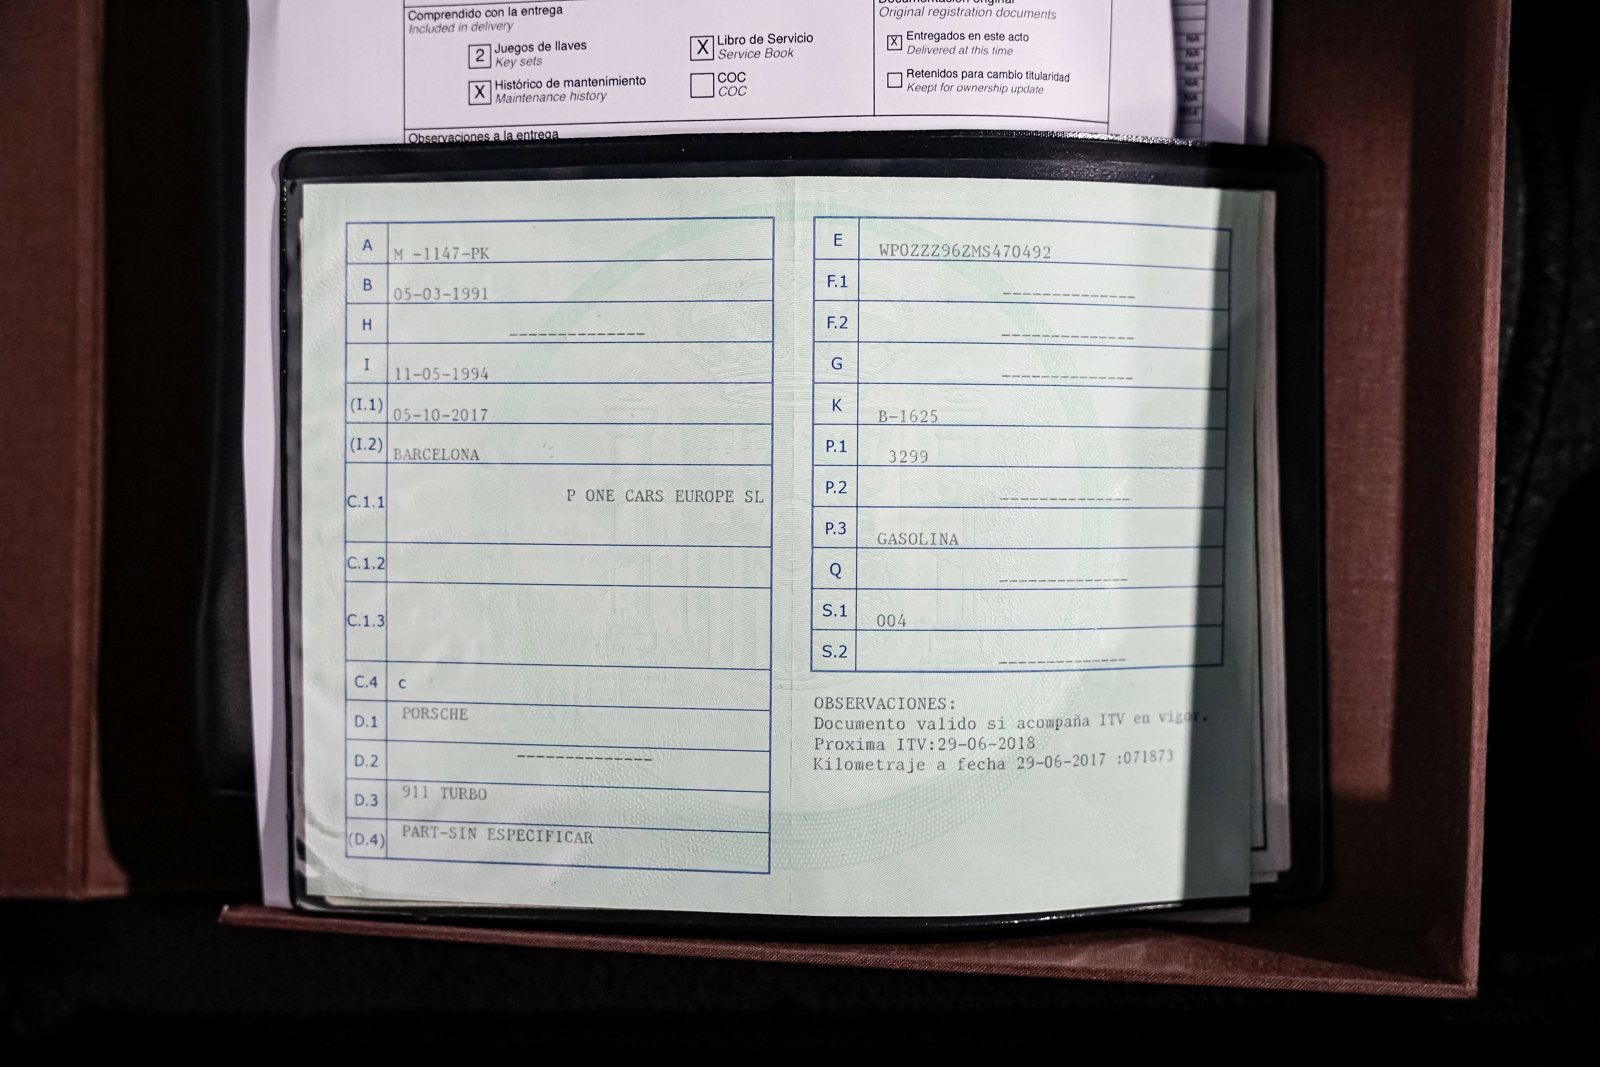 Comprendido con la entrega
Included in delivery
2 Juegos de llaves
Key sets
X Libro de Servicio
Service Book
X Histórico de mantenimiento
Maintenance history
COC
COC
Observaciones a la entrega
Original registration documents
X Entregados en este acto
Delivered at this time
Retenidos para cambio titularidad
Keept for ownership update
N/A
N/A
N/A
N/A
N/A
A M -1147-PK
B 05-03-1991
H --------------
I 11-05-1994
(I.1) 05-10-2017
(I.2) BARCELONA
C.1.1 P ONE CARS EUROPE SL
C.1.2
C.1.3
C.4 c
D.1 PORSCHE
D.2 --------------
D.3 911 TURBO
(D.4) PART-SIN ESPECIFICAR
E WPOZZZ96ZMS470492
F.1 --------------
F.2 --------------
G --------------
K B-1625
P.1 3299
P.2 --------------
P.3 GASOLINA
Q --------------
S.1 004
S.2 --------------
OBSERVACIONES:
Documento valido si acompaña ITV en vigor.
Proxima ITV:29-06-2018
Kilometraje a fecha 29-06-2017 :071873